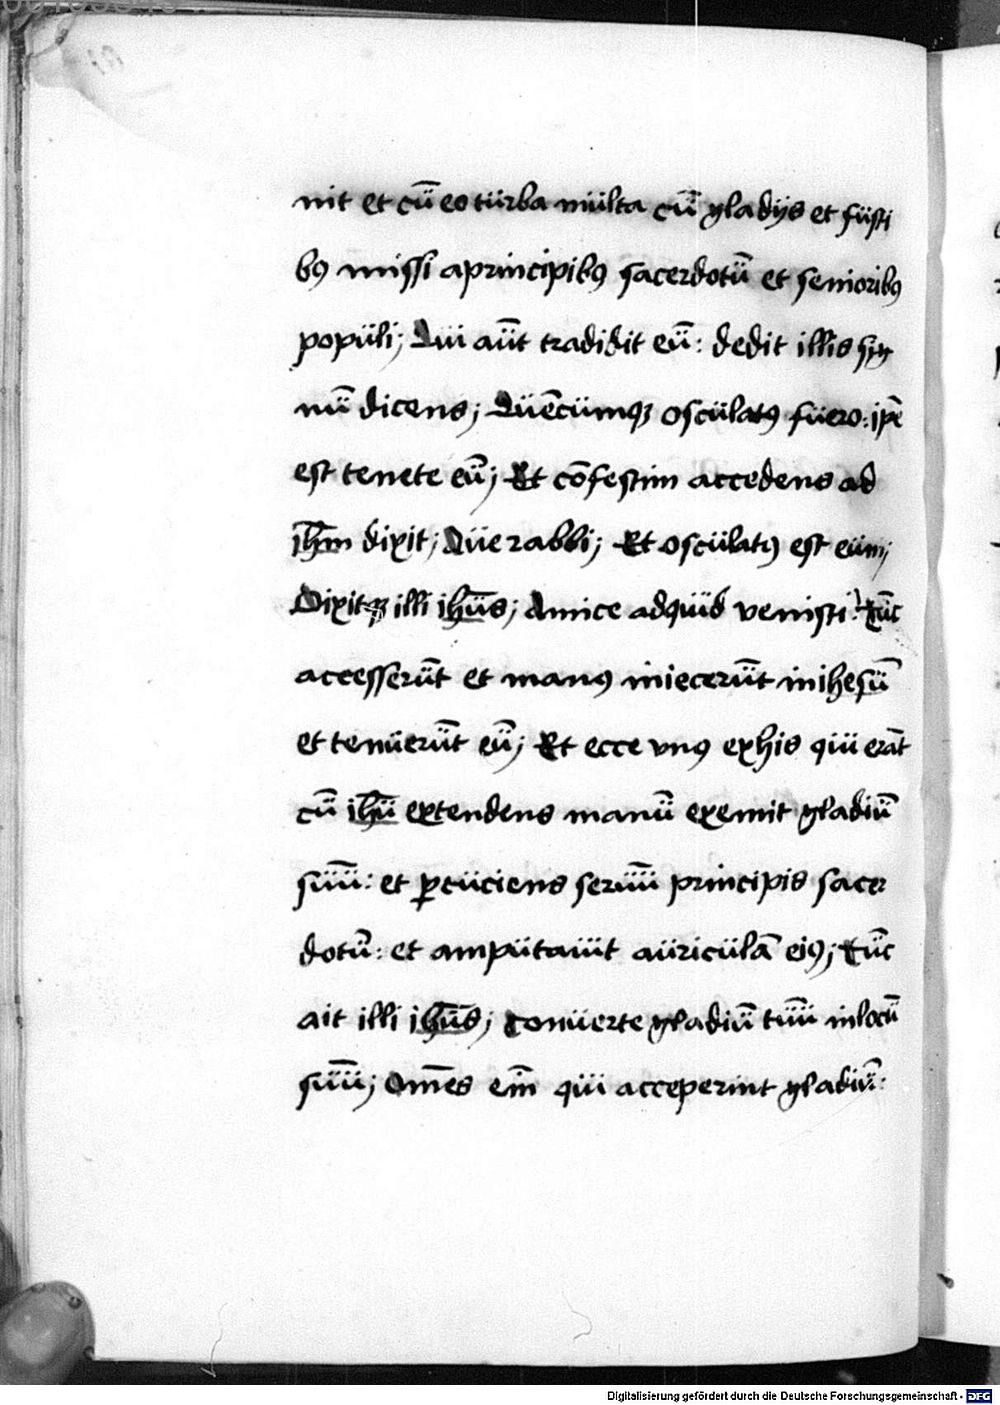 nit et cū eo turba multa cū gladijs et fusti
bꝰ missi a principibꝰ sacerdotū et senioribꝰ
populi; Qui aūt tradidit eū: dedit illis sig
nū dicens; Quēcumqꝫ osculatꝰ fuero: ip̄e
est tenete eū; Et cōfestim accedens ad
ih̄m dixit; Aue rabbi; Et osculatꝰ est eum;
Dixitqꝫ illi ih̄us; Amice ad quid venisti? Tūc
accesserūt et manꝰ iniecerūt in ihesū
et tenuerūt eū; Et ecce vnꝰ ex his qui erāt
cū ih̄u extendens manū exemit gladiū
suū: et ꝑcuciens seruū principis sacer
dotū: et amputauit auriculā eiꝰ; Tūc
ait illi ih̄us; Conuerte gladiū tuū in locū
suū; Om̄es em̄ qui acceperint gladiū:
Digitalisierung gefördert durch die Deutsche Forschungsgemeinschaft - DFG